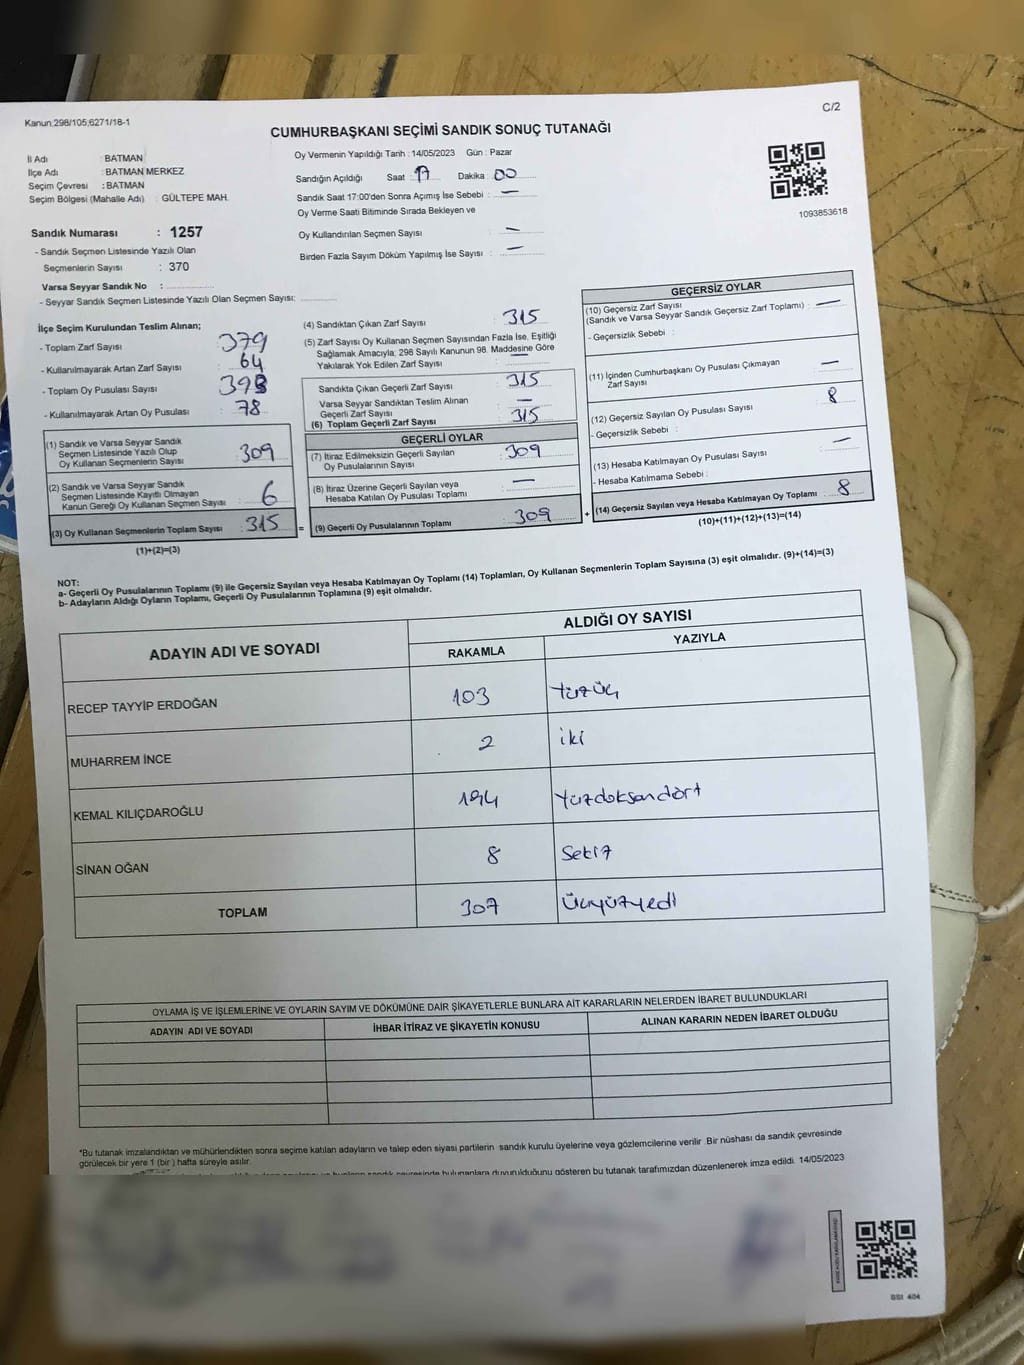 Kanun:298/105;6271/18-1
C/2
CUMHURBAŞKANI SEÇİMİ SANDIK SONUÇ TUTANAĞI
İl Adı : BATMAN
İlçe Adı : BATMAN MERKEZ
Seçim Çevresi : BATMAN
Seçim Bölgesi (Mahalle Adı) : GÜLTEPE MAH.
Sandık Numarası : 1257
- Sandık Seçmen Listesinde Yazılı Olan
Seçmenlerin Sayısı : 370
Varsa Seyyar Sandık No :
- Seyyar Sandık Seçmen Listesinde Yazılı Olan Seçmen Sayısı:
Oy Vermenin Yapıldığı Tarih : 14/05/2023 Gün : Pazar
Sandığın Açıldığı Saat : 17 Dakika : 00
Sandık Saat 17:00'den Sonra Açımış İse Sebebi : —
Oy Verme Saati Bitiminde Sırada Bekleyen ve
Oy Kullandırılan Seçmen Sayısı : —
Birden Fazla Sayım Döküm Yapılmış İse Sayısı : —
1093853618
İlçe Seçim Kurulundan Teslim Alınan;
- Toplam Zarf Sayısı : 379
- Kullanılmayarak Artan Zarf Sayısı : 64
- Toplam Oy Pusulası Sayısı : 393
- Kullanılmayarak Artan Oy Pusulası : 78
(1) Sandık ve Varsa Seyyar Sandık
Seçmen Listesinde Yazılı Olup
Oy Kullanan Seçmenlerin Sayısı : 309
(2) Sandık ve Varsa Seyyar Sandık
Seçmen Listesinde Kayıtlı Olmayan
Kanun Gereği Oy Kullanan Seçmen Sayısı : 6
(3) Oy Kullanan Seçmenlerin Toplam Sayısı : 315 =
(1)+(2)=(3)
(4) Sandıktan Çıkan Zarf Sayısı : 315
(5) Zarf Sayısı Oy Kullanan Seçmen Sayısından Fazla İse, Eşitliği
Sağlamak Amacıyla, 298 Sayılı Kanunun 98. Maddesine Göre
Yakılarak Yok Edilen Zarf Sayısı : —
Sandıkta Çıkan Geçerli Zarf Sayısı : 315
Varsa Seyyar Sandıktan Teslim Alınan
Geçerli Zarf Sayısı : —
(6) Toplam Geçerli Zarf Sayısı : 315
GEÇERLİ OYLAR
(7) İtiraz Edilmeksizin Geçerli Sayılan
Oy Pusulalarının Sayısı : 309
(8) İtiraz Üzerine Geçerli Sayılan veya
Hesaba Katılan Oy Pusulası Toplamı : —
(9) Geçerli Oy Pusulalarının Toplamı : 309 +
GEÇERSİZ OYLAR
(10) Geçersiz Zarf Sayısı
(Sandık ve Varsa Seyyar Sandık Geçersiz Zarf Toplamı) : —
- Geçersizlik Sebebi :
(11) İçinden Cumhurbaşkanı Oy Pusulası Çıkmayan
Zarf Sayısı : —
(12) Geçersiz Sayılan Oy Pusulası Sayısı : 8
- Geçersizlik Sebebi :
(13) Hesaba Katılmayan Oy Pusulası Sayısı : —
- Hesaba Katılmama Sebebi :
(14) Geçersiz Sayılan veya Hesaba Katılmayan Oy Toplamı : 8
(10)+(11)+(12)+(13)=(14)
NOT:
a- Geçerli Oy Pusulalarının Toplamı (9) ile Geçersiz Sayılan veya Hesaba Katılmayan Oy Toplamı (14) Toplamları, Oy Kullanan Seçmenlerin Toplam Sayısına (3) eşit olmalıdır. (9)+(14)=(3)
b- Adayların Aldığı Oyların Toplamı, Geçerli Oy Pusulalarının Toplamına (9) eşit olmalıdır.
ADAYIN ADI VE SOYADI
ALDIĞI OY SAYISI
RAKAMLA YAZIYLA
RECEP TAYYİP ERDOĞAN 103 Yüzüç
MUHARREM İNCE 2 iki
KEMAL KILIÇDAROĞLU 194 Yüzdoksandört
SİNAN OĞAN 8 Sekiz
TOPLAM 307 Üçyüzyedi
OYLAMA İŞ VE İŞLEMLERİNE VE OYLARIN SAYIM VE DÖKÜMÜNE DAİR ŞİKAYETLERLE BUNLARA AİT KARARLARIN NELERDEN İBARET BULUNDUKLARI
ADAYIN ADI VE SOYADI İHBAR İTİRAZ VE ŞİKAYETİN KONUSU ALINAN KARARIN NEDEN İBARET OLDUĞU
*Bu tutanak imzalandıktan ve mühürlendikten sonra seçime katılan adayların ve talep eden siyasi partilerin sandık kurulu üyelerine veya gözlemcilerine verilir .Bir nüshası da sandık çevresinde
görülecek bir yere 1 (bir ) hafta süreyle asılır.
bulunanlara duyurulduğunu gösteren bu tutanak tarafımızdan düzenlenerek imza edildi. 14/05/2023